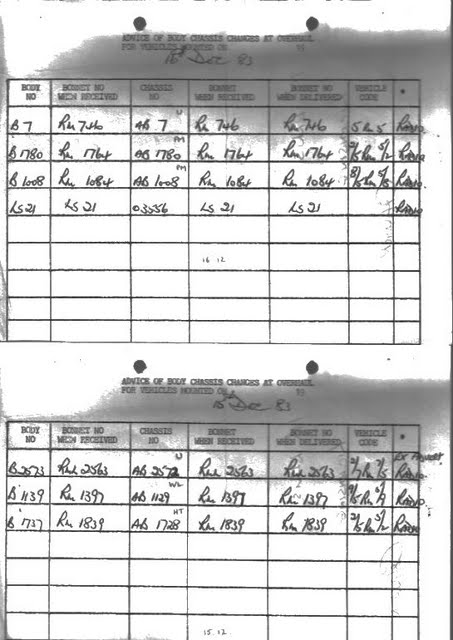 ADVICE OF BODY CHASSIS CHANGES AT OVERHAUL
FOR VEHICLES MOUNTED ON 19
16th Dec 83
BODY NO BONNET NO WHEN RECEIVED CHASSIS NO BONNET WHEN RECEIVED BONNET NO WHEN DELIVERED VEHICLE CODE *
B 7 Rm 746 AB 7 U Rm 746 Rm 746 5 Rm 5 Radio
B 1780 Rm 1764 AB 1780 PM Rm 1764 Rm 1764 Radio
B 1008 Rm 1084 AB 1008 PM Rm 1084 Rm 1084 Radio
LS 21 LS 21 03556 LS 21 LS 21 Radio
16.12
ADVICE OF BODY CHASSIS CHANGES AT OVERHAUL
FOR VEHICLES MOUNTED ON 19
15th Dec 83
BODY NO BONNET NO WHEN RECEIVED CHASSIS NO BONNET WHEN RECEIVED BONNET NO WHEN DELIVERED VEHICLE CODE *
B 2573 RML 2563 AB 2572 U RML 2563 RML 2563 Radio
B 1139 Rm 1397 AB 1129 WL Rm 1397 Rm 1397 Radio
B 1737 Rm 1839 AB 1728 HT Rm 1839 Rm 1839 Radio
15.12